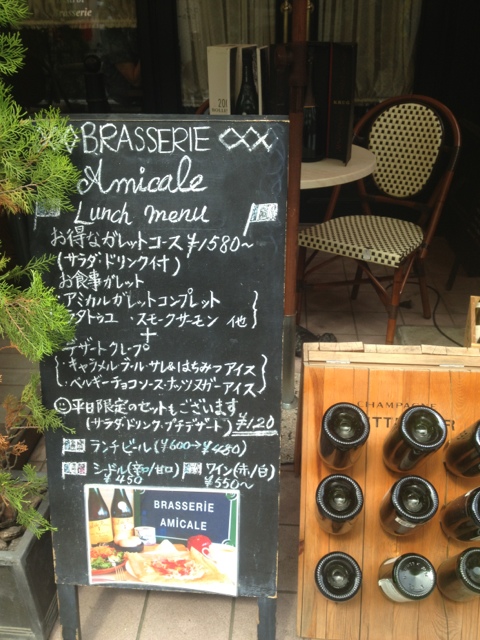 Brasserie
201
BRASSERIE
Amicale
Lunch menu
お得なガレットコース ¥1580~
(サラダ・ドリンク付)
お食事ガレット
・アミカルガレットコンプレット
ラタトゥユ ・スモークサーモン 他
+
デザートクレープ
・キャラメル・ブール・サレ&はちみつアイス
・ベルギーチョコソース・ナッツ・スガーアイス
平日限定のセットもございます
(サラダ・ドリンク・プチデザート) ¥1120
ランチビール (¥600→¥480)
シードル(辛口/甘口) ワイン(赤/白)
¥450 ¥550~
BRASSERIE
AMICALE
CHAMPAGNE